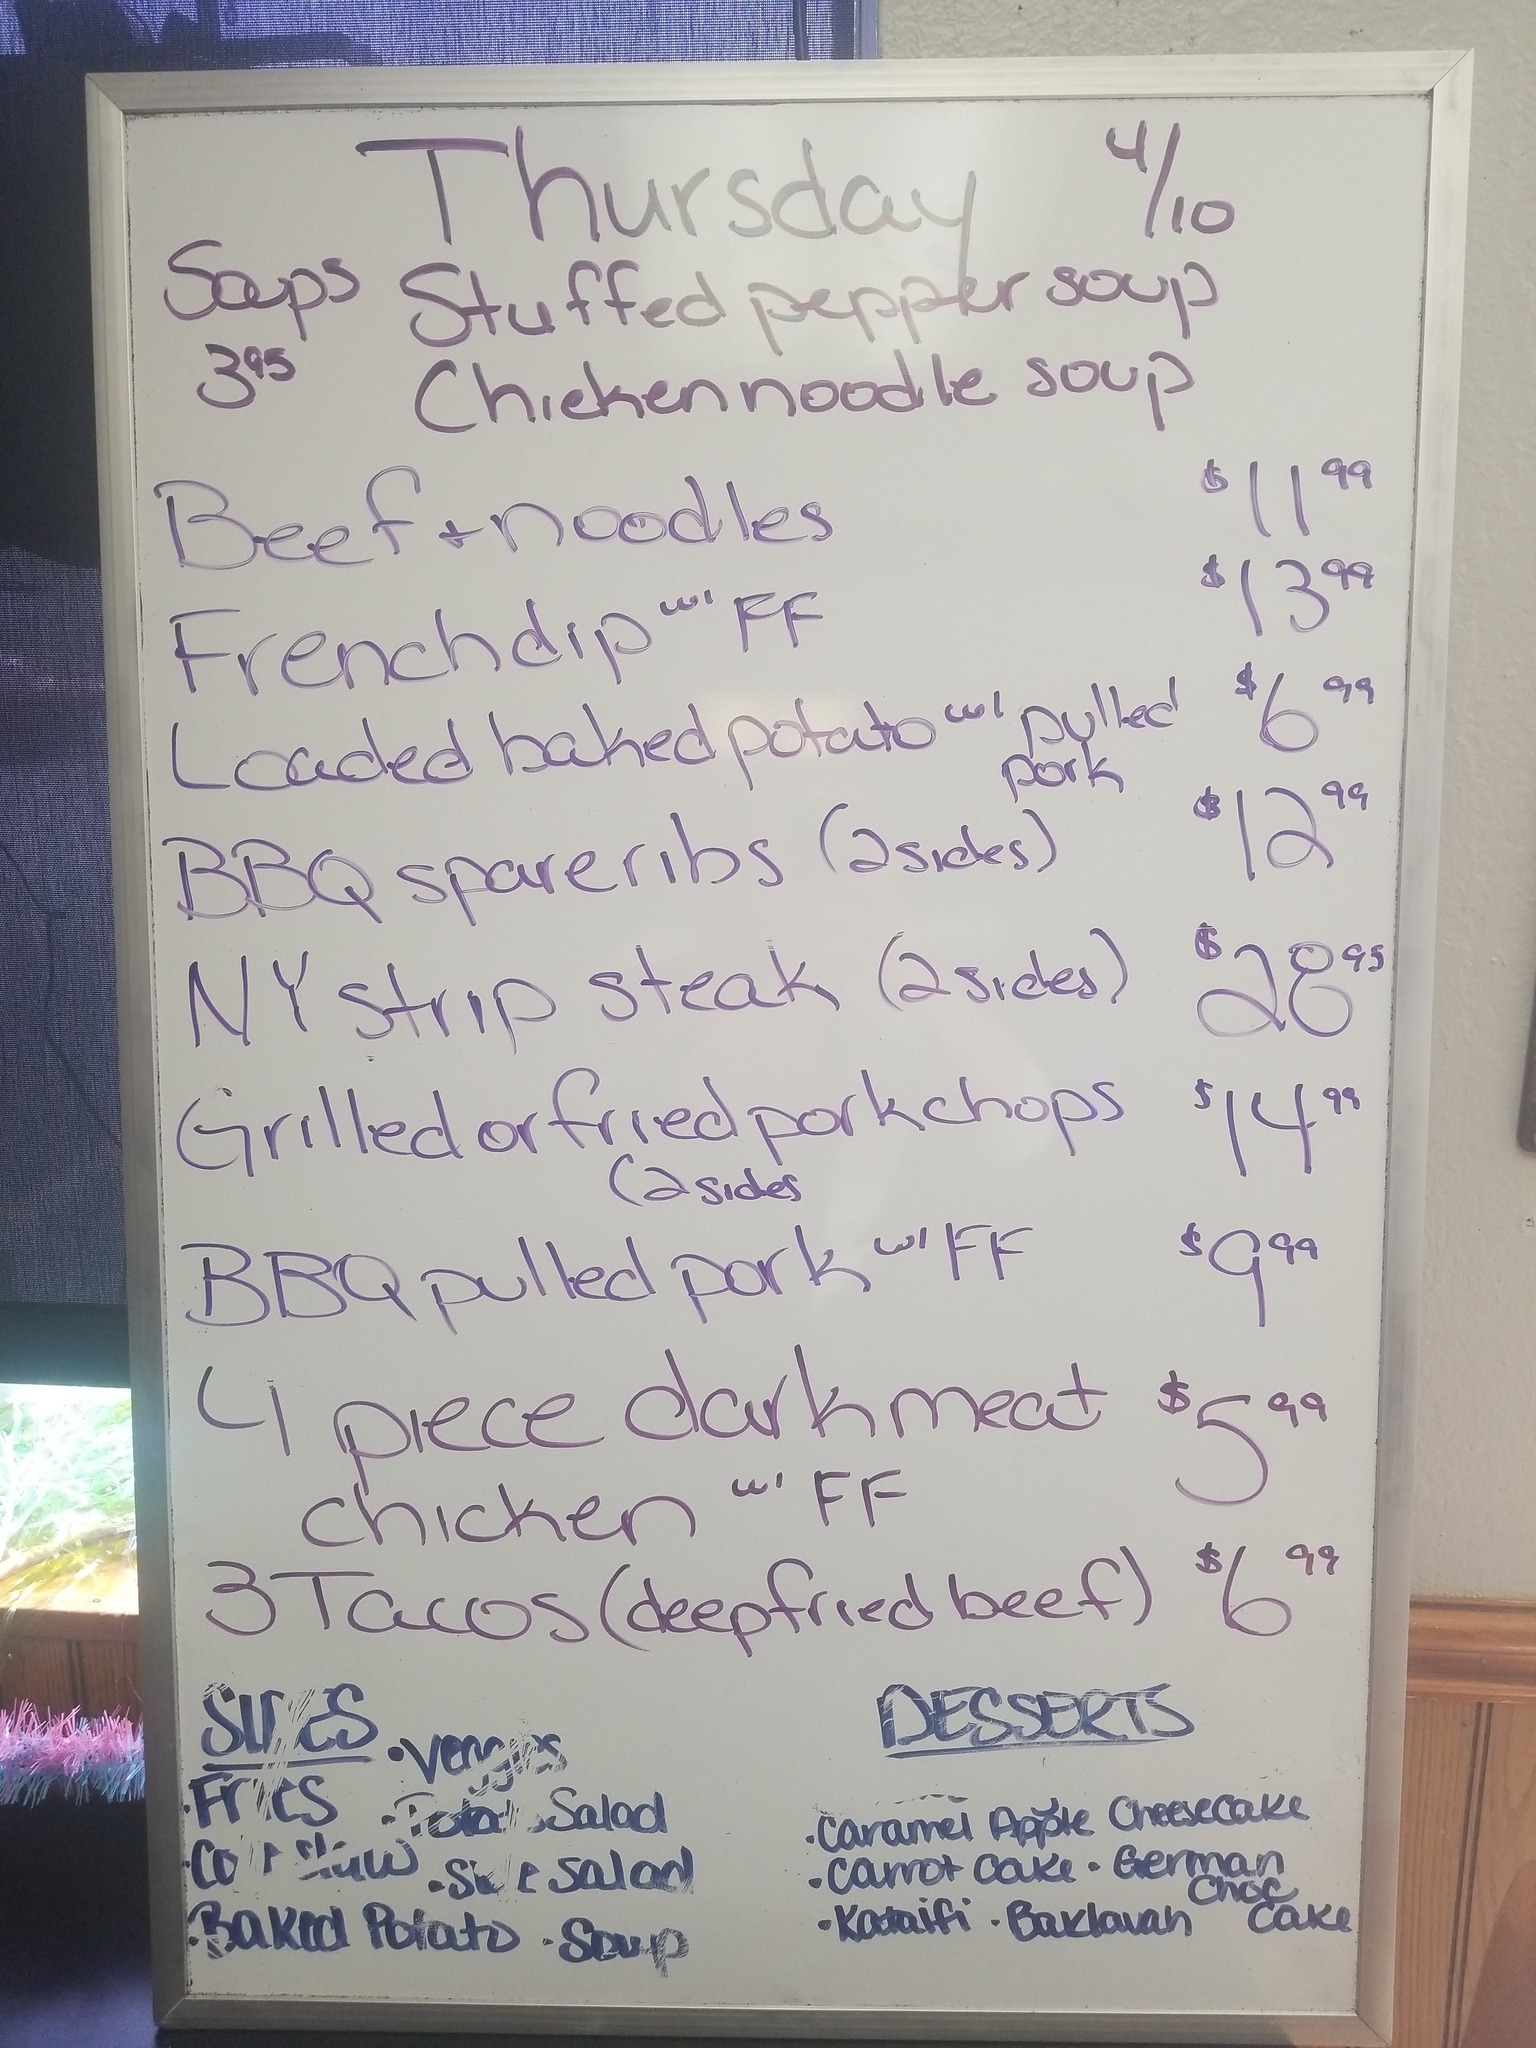 Thursday 4/10
Soups Stuffed pepper soup
3.95 Chicken noodle soup
Beef + noodles $11.99
French dip w/ FF $13.99
Loaded baked potato w/ pulled $6.99
pork
BBQ spareribs (2 sides) $12.99
NY strip steak (2 sides) $28.95
Grilled or fried pork chops $14.99
(2 sides
BBQ pulled pork w/ FF $9.99
4 piece dark meat $5.99
chicken w/ FF
3 Tacos (deep fried beef) $6.99
SIDES
• Veggies
• Fries • Potato Salad
• Cole Slaw • Side Salad
• Baked Potato • Soup
DESSERTS
• Caramel Apple Cheesecake
• Carrot Cake • German
Choc
• Kataifi • Baklavah Cake